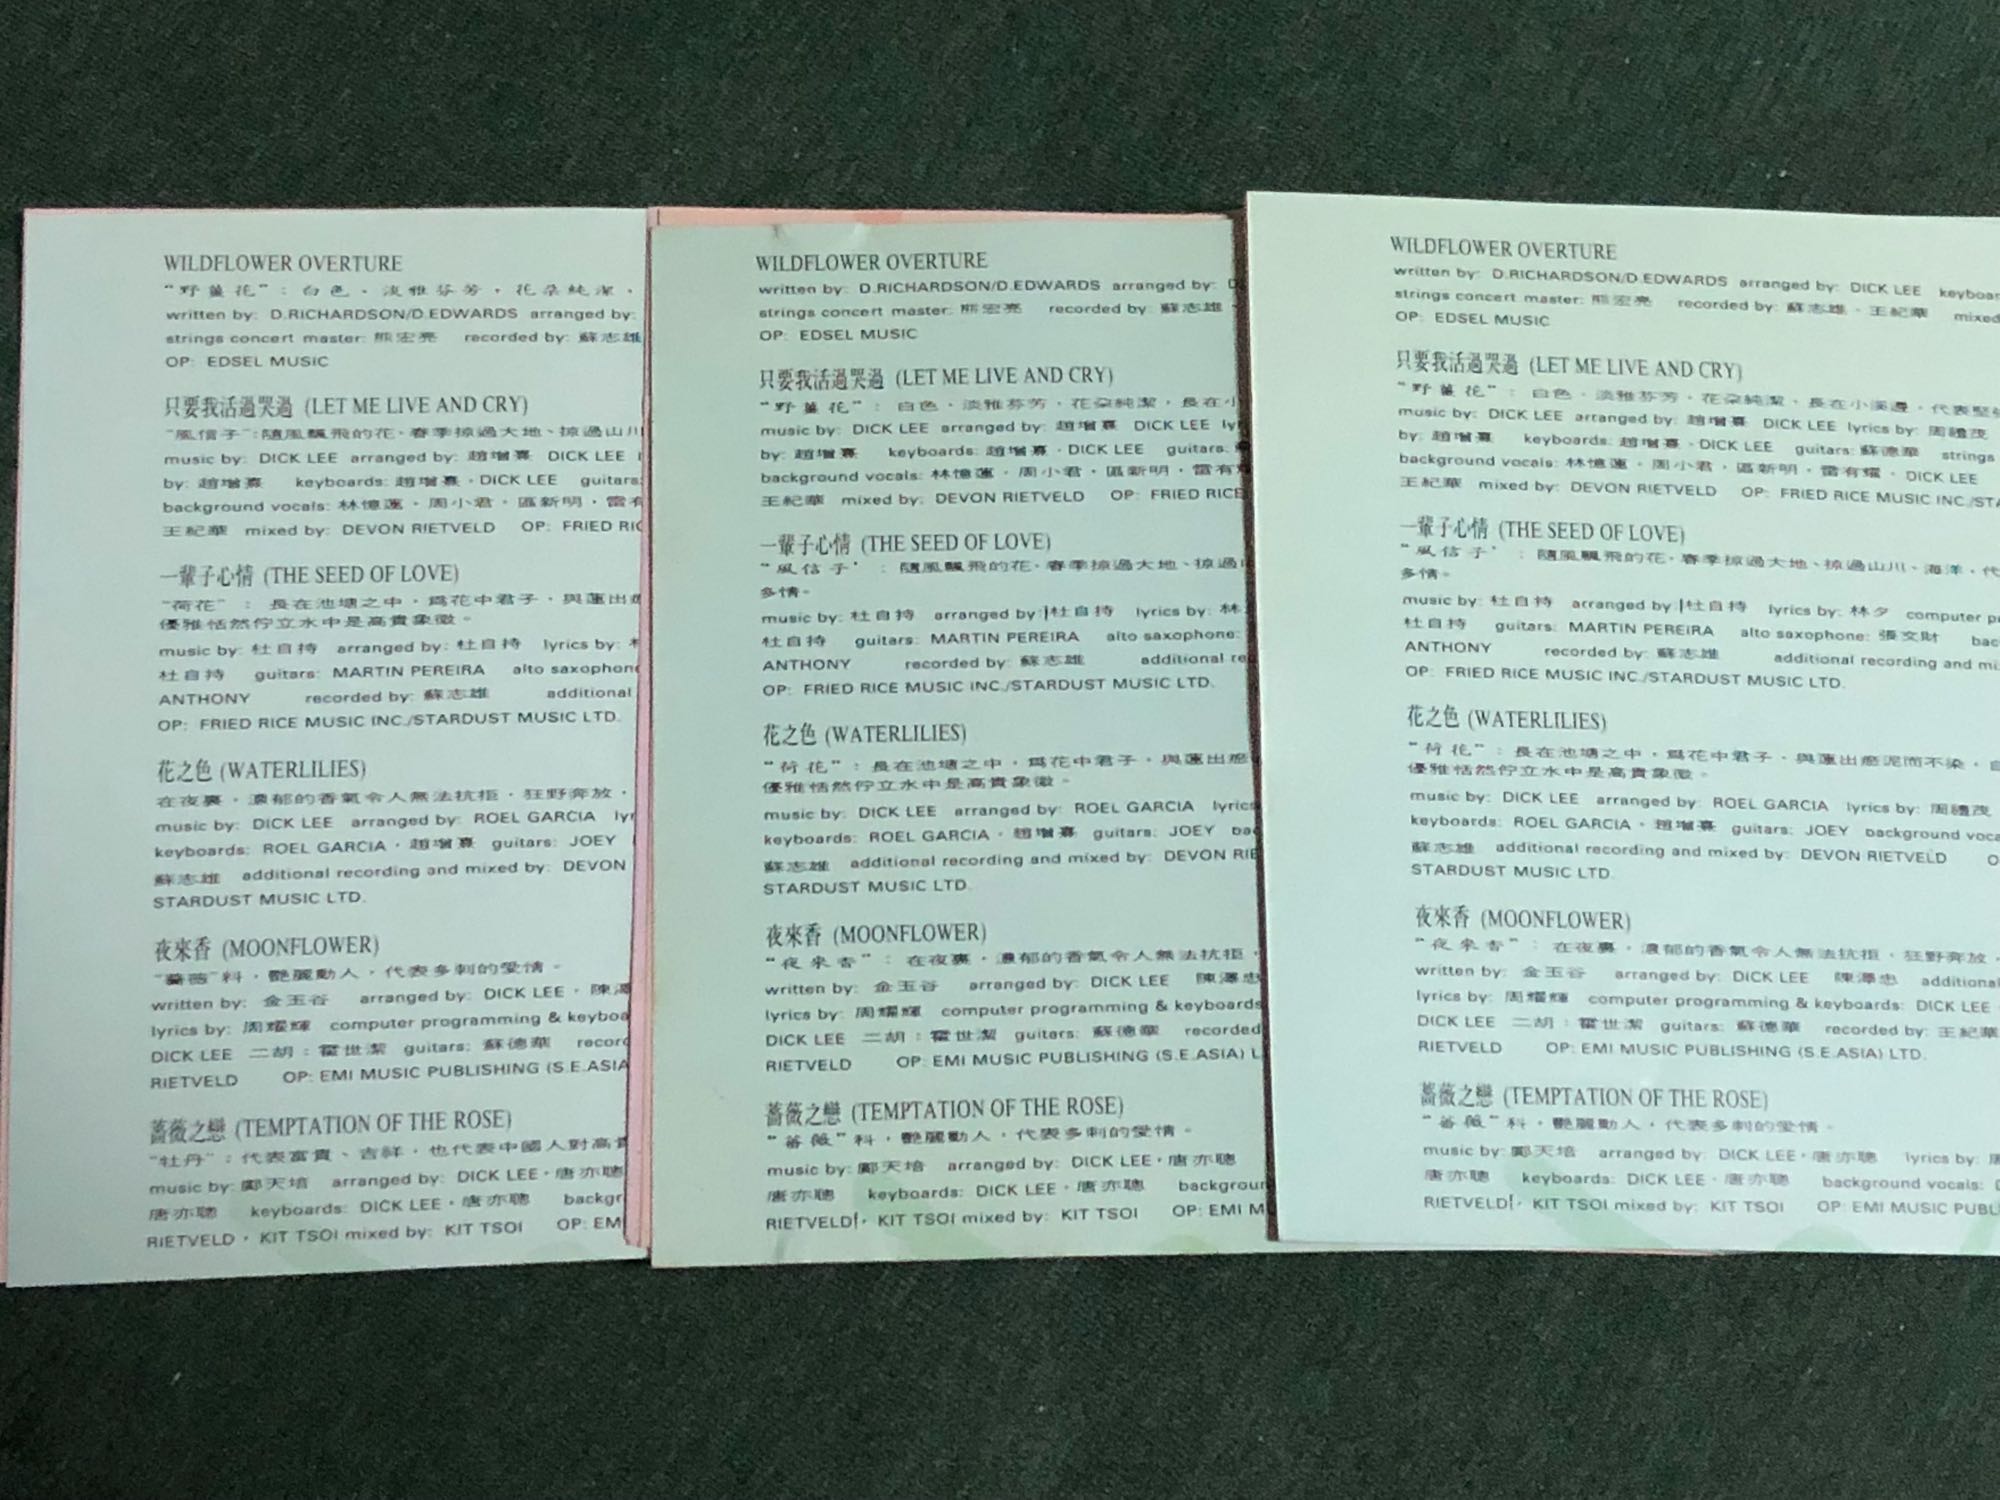 WILDFLOWER OVERTURE
"野薑花"：白色，淡雅芬芳，花朵純潔，
written by: D.RICHARDSON/D.EDWARDS arranged by:
strings concert master: 熊宏亮 recorded by: 蘇志雄
OP: EDSEL MUSIC
只要我活過哭過 (LET ME LIVE AND CRY)
"風信子"：隨風飄飛的花，春季掠過大地、掠過山川
music by: DICK LEE arranged by: 趙增熹 DICK LEE
by: 趙增熹 keyboards: 趙增熹，DICK LEE guitars:
background vocals: 林憶蓮，周小君，區新明，雷有
王紀華 mixed by: DEVON RIETVELD OP: FRIED RIC
一輩子心情 (THE SEED OF LOVE)
"荷花"：長在池塘之中，爲花中君子，與蓮出
優雅恬然佇立水中是高貴象徵。
music by: 杜自持 arranged by: 杜自持 lyrics by:
杜自持 guitars: MARTIN PEREIRA alto saxophon
ANTHONY recorded by: 蘇志雄 additional
OP: FRIED RICE MUSIC INC./STARDUST MUSIC LTD.
花之色 (WATERLILIES)
在夜裏，濃郁的香氣令人無法抗拒，狂野奔放，
music by: DICK LEE arranged by: ROEL GARCIA lyr
keyboards: ROEL GARCIA，趙增熹 guitars: JOEY
蘇志雄 additional recording and mixed by: DEVON
STARDUST MUSIC LTD.
夜來香 (MOONFLOWER)
"薔薇"科，艷麗動人，代表多刺的愛情。
written by: 金玉谷 arranged by: DICK LEE，陳澤
lyrics by: 周耀輝 computer programming & keyboa
DICK LEE 二胡：霍世潔 guitars: 蘇德華 record
RIETVELD OP: EMI MUSIC PUBLISHING (S.E.ASIA
薔薇之戀 (TEMPTATION OF THE ROSE)
"牡丹"：代表富貴、吉祥，也代表中國人對高貴
music by: 鄺天培 arranged by: DICK LEE，唐亦聰
唐亦聰 keyboards: DICK LEE，唐亦聰 backgr
RIETVELD，KIT TSOI mixed by: KIT TSOI OP: EM
WILDFLOWER OVERTURE
written by: D.RICHARDSON/D.EDWARDS arranged by: D
strings concert master: 熊宏亮 recorded by: 蘇志雄
OP: EDSEL MUSIC
只要我活過哭過 (LET ME LIVE AND CRY)
"野薑花"：白色，淡雅芬芳，花朵純潔，長在小
music by: DICK LEE arranged by: 趙增熹 DICK LEE lyr
by: 趙增熹 keyboards: 趙增熹，DICK LEE guitars:
background vocals: 林憶蓮，周小君，區新明，雷有耀
王紀華 mixed by: DEVON RIETVELD OP: FRIED RICE
一輩子心情 (THE SEED OF LOVE)
"風信子"：隨風飄飛的花，春季掠過大地、掠過
多情。
music by: 杜自持 arranged by:|杜自持 lyrics by: 林
杜自持 guitars: MARTIN PEREIRA alto saxophone:
ANTHONY recorded by: 蘇志雄 additional re
OP: FRIED RICE MUSIC INC./STARDUST MUSIC LTD.
花之色 (WATERLILIES)
"荷花"：長在池塘之中，爲花中君子，與蓮出瘀
優雅恬然佇立水中是高貴象徵。
music by: DICK LEE arranged by: ROEL GARCIA lyrics
keyboards: ROEL GARCIA，趙增熹 guitars: JOEY bac
蘇志雄 additional recording and mixed by: DEVON RIE
STARDUST MUSIC LTD.
夜來香 (MOONFLOWER)
"夜來香"：在夜裏，濃郁的香氣令人無法抗拒，
written by: 金玉谷 arranged by: DICK LEE 陳澤忠
lyrics by: 周耀輝 computer programming & keyboards
DICK LEE 二胡：霍世潔 guitars: 蘇德華 recorded
RIETVELD OP: EMI MUSIC PUBLISHING (S.E.ASIA) L
薔薇之戀 (TEMPTATION OF THE ROSE)
"薔薇"科，艷麗動人，代表多刺的愛情。
music by: 鄺天培 arranged by: DICK LEE，唐亦聰
唐亦聰 keyboards: DICK LEE，唐亦聰 backgrour
RIETVELD|，KIT TSOI mixed by: KIT TSOI OP: EMI M
WILDFLOWER OVERTURE
written by: D.RICHARDSON/D.EDWARDS arranged by: DICK LEE keyboar
strings concert master: 熊宏亮 recorded by: 蘇志雄，王紀華 mixed
OP: EDSEL MUSIC
只要我活過哭過 (LET ME LIVE AND CRY)
"野薑花"：白色，淡雅芬芳，花朵純潔，長在小溪邊，代表堅強
music by: DICK LEE arranged by: 趙增熹 DICK LEE lyrics by: 周禮茂
by: 趙增熹 keyboards: 趙增熹，DICK LEE guitars: 蘇德華 strings
background vocals: 林憶蓮，周小君，區新明，雷有耀，DICK LEE
王紀華 mixed by: DEVON RIETVELD OP: FRIED RICE MUSIC INC./STA
一輩子心情 (THE SEED OF LOVE)
"風信子"：隨風飄飛的花，春季掠過大地、掠過山川、海洋，代
多情。
music by: 杜自持 arranged by:|杜自持 lyrics by: 林夕 computer p
杜自持 guitars: MARTIN PEREIRA alto saxophone: 張文財 bac
ANTHONY recorded by: 蘇志雄 additional recording and mi
OP: FRIED RICE MUSIC INC./STARDUST MUSIC LTD.
花之色 (WATERLILIES)
"荷花"：長在池塘之中，爲花中君子，與蓮出瘀泥而不染，自
優雅恬然佇立水中是高貴象徵。
music by: DICK LEE arranged by: ROEL GARCIA lyrics by: 周禮茂
keyboards: ROEL GARCIA，趙增熹 guitars: JOEY background voca
蘇志雄 additional recording and mixed by: DEVON RIETVELD O
STARDUST MUSIC LTD.
夜來香 (MOONFLOWER)
"夜來香"：在夜裏，濃郁的香氣令人無法抗拒，狂野奔放，
written by: 金玉谷 arranged by: DICK LEE 陳澤忠 additional
lyrics by: 周耀輝 computer programming & keyboards: DICK LEE
DICK LEE 二胡：霍世潔 guitars: 蘇德華 recorded by: 王紀華
RIETVELD OP: EMI MUSIC PUBLISHING (S.E.ASIA) LTD.
薔薇之戀 (TEMPTATION OF THE ROSE)
"薔薇"科，艷麗動人，代表多刺的愛情。
music by: 鄺天培 arranged by: DICK LEE，唐亦聰 lyrics by:
唐亦聰 keyboards: DICK LEE，唐亦聰 background vocals:
RIETVELD|，KIT TSOI mixed by: KIT TSOI OP: EMI MUSIC PUBL